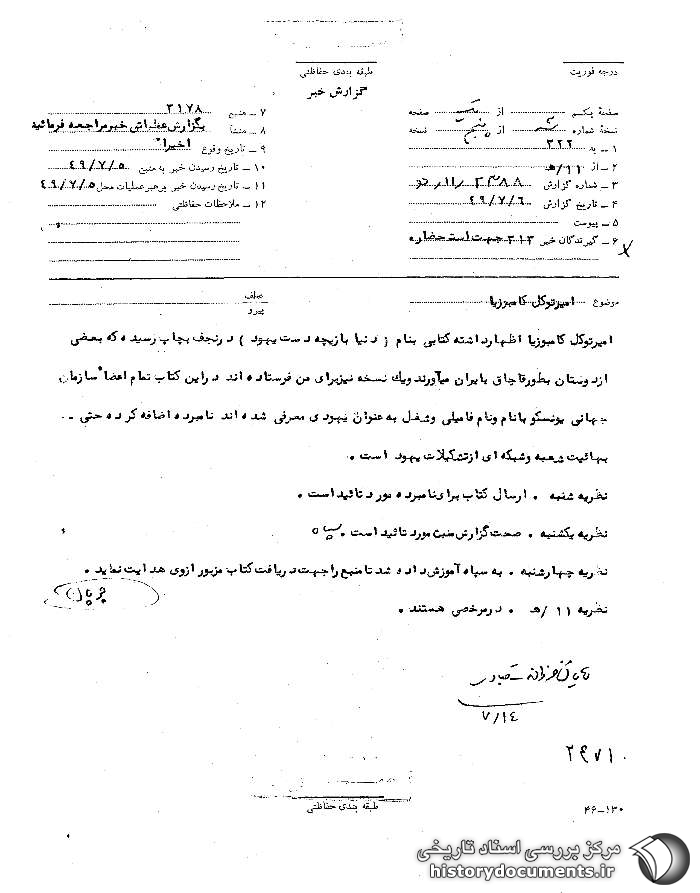 درجه فوریت
طبقه بندی حفاظتی
گزارش خبر
صفحهٔ یکم از یک صفحه
نسخهٔ شماره از پنج نسخه
۱ ـ به ۳۲۲
۲ ـ از ۱۱/هـ
۳ ـ شماره گزارش
۴ ـ تاریخ گزارش ۴۹/۷/۶
۵ ـ پیوست
۶ ـ گیرندگان خبر ۳۱۳ جهت استحضار
۷ ـ منبع ۳۱۷۸
۸ ـ منشأ بگزارش عملیاتی خبر مراجعه فرمائید
۹ ـ تاریخ وقوع اخیرا"
۱۰ ـ تاریخ رسیدن خبر به منبع ۴۹/۷/۵
۱۱ ـ تاریخ رسیدن خبر برهبر عملیات محل ۴۹/۷/۵
۱۲ ـ ملاحظات حفاظتی
موضوع امیرتوکل کامبوزیا
عطف
پیرو
امیرتوکل کامبوزیا اظهار داشته کتابی بنام ( دنیا بازیچه دست یهود ) در نجف بچاپ رسیده که بعضی
از دوستان بطور قاچاق بایران میآورند و یک نسخه نیز برای من فرستاده اند در این کتاب تمام اعضا" سازمان
جهانی یونسکو بانام ونام فامیلی وشغل به عنوان یهودی معرفی شده اند نامبرده اضافه کرده حتی ـ
بهائیت شعبه وشبکه ای از تشکیلات یهود است .
نظریه شنبه . ارسال کتاب برای نامبرده مورد تائید است .
نظریه یکشنبه . صحت گزارش منبع مورد تائید است . سپاه
نظریه چهارشنبه . به سپاه آموزش داده شد تا منبع را جهت دریافت کتاب مزبور از وی هدایت نماید .
نظریه ۱۱ /هـ . در مرخصی هستند .
۷/۱۴
۲۹۷۱۰
طبقه بندی حفاظتی
۴۶-۱۳۰
مرکز بررسی اسناد تاریخی
historydocuments.ir